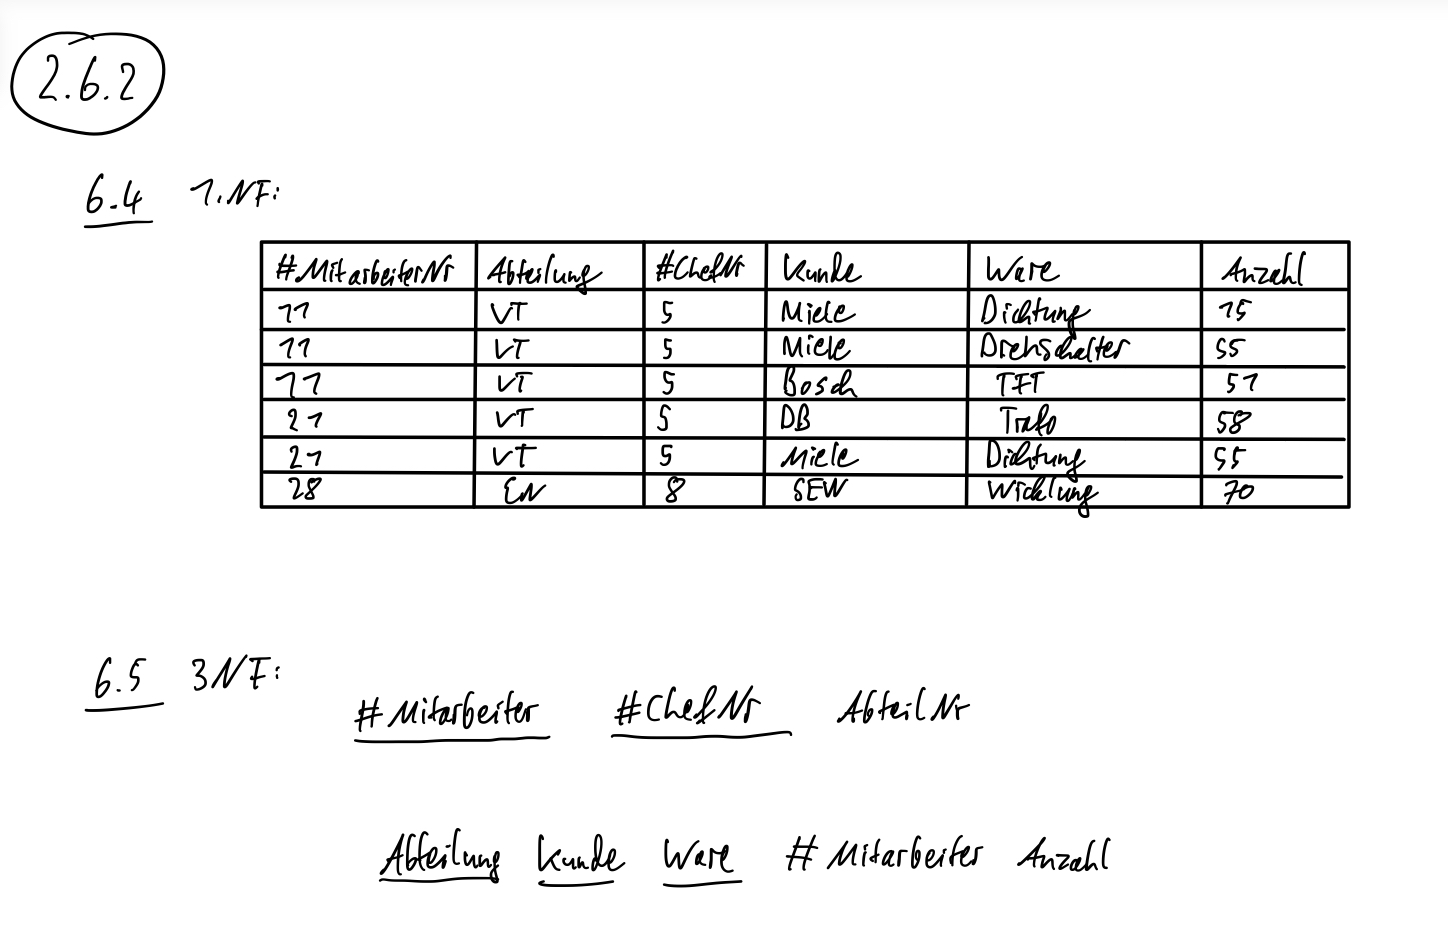 2.6.2
6.4 1.NF:
#MitarbeiterNr Abteilung #ChefNr Kunde Ware Anzahl
11 VT 5 Miele Dichtung 15
11 VT 5 Miele Drehschalter 55
11 VT 5 Bosch TFT 51
21 VT 5 DB Trafo 58
21 VT 5 Miele Dichtung 55
28 EN 8 SEW Wicklung 70
6.5 3NF:
#Mitarbeiter #ChefNr AbteilNr
Abteilung Kunde Ware #Mitarbeiter Anzahl